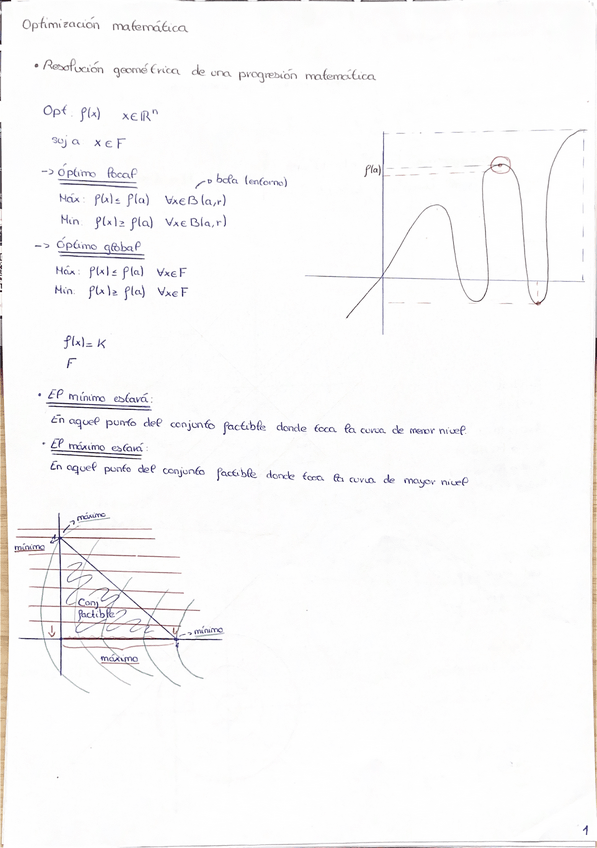 Optimización matemática
• Resolución geométrica de una progresión matemática
Opt. f(x) x∈ℝⁿ
suj a x∈F
-> Óptimo local
bola (entorno)
Máx: f(x)≤ f(a) ∀x∈B(a,r)
Min. f(x)≥ f(a) ∀x∈B(a,r)
-> Óptimo global
Máx: f(x)≤ f(a) ∀x∈F
Min. f(x)≥ f(a) ∀x∈F
f(a)
f(x)= K
F
• El mínimo estará:
En aquel punto del conjunto factible donde toca la curva de menor nivel.
• El máximo estará:
En aquel punto del conjunto factible donde toca la curva de mayor nivel
máximo
mínimo
Conj
factible
mínimo
máximo
1